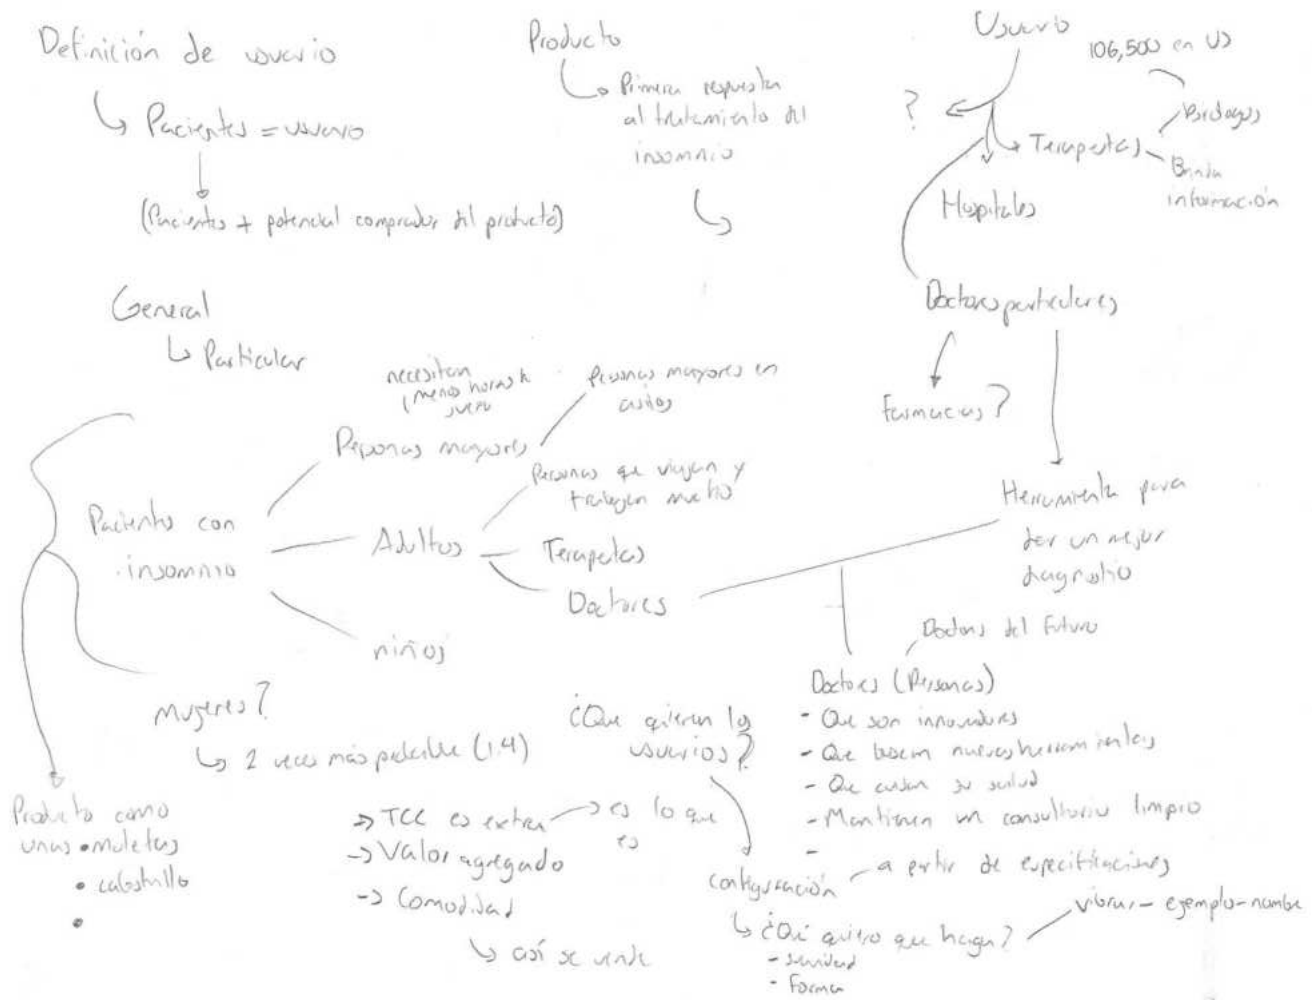 Definición de usuario
Pacientes = usuario
(Pacientes + potencial comprador del producto)
Producto
Primera respuesta
al tratamiento del
insomnio
Usuario
106,500 en US
?
Terapeutas
Psicólogos
Brinda
información
Hospitales
Doctores particulares
Farmacias?
Herramienta para
dar un mejor
diagnostio
General
Particular
necesitan
menos horas de
sueño
Personas mayores
Personas mayores en
asilos
Pacientes con
insomnio
Adultos
Personas que viajan y
trabajan mucho
Terapeutas
Doctores
niños
Mujeres?
2 veces más (1.4)
Producto como
unas • muletas
• cabestrillo
•
¿Que quieren los
usuarios?
→ TCC es extra → es lo que
es
→ Valor agregado
→ Comodidad
así se vende
Doctores del futuro
Doctores (Personas)
- Que son innovadores
- Que buscan nuevas herramientas
- Que cuidan su salud
- Mantienen un consultorio limpio
-
configuración
a partir de especificaciones
¿Qué quiero que haga?
vibrar - ejemplo - nombre
- Forma